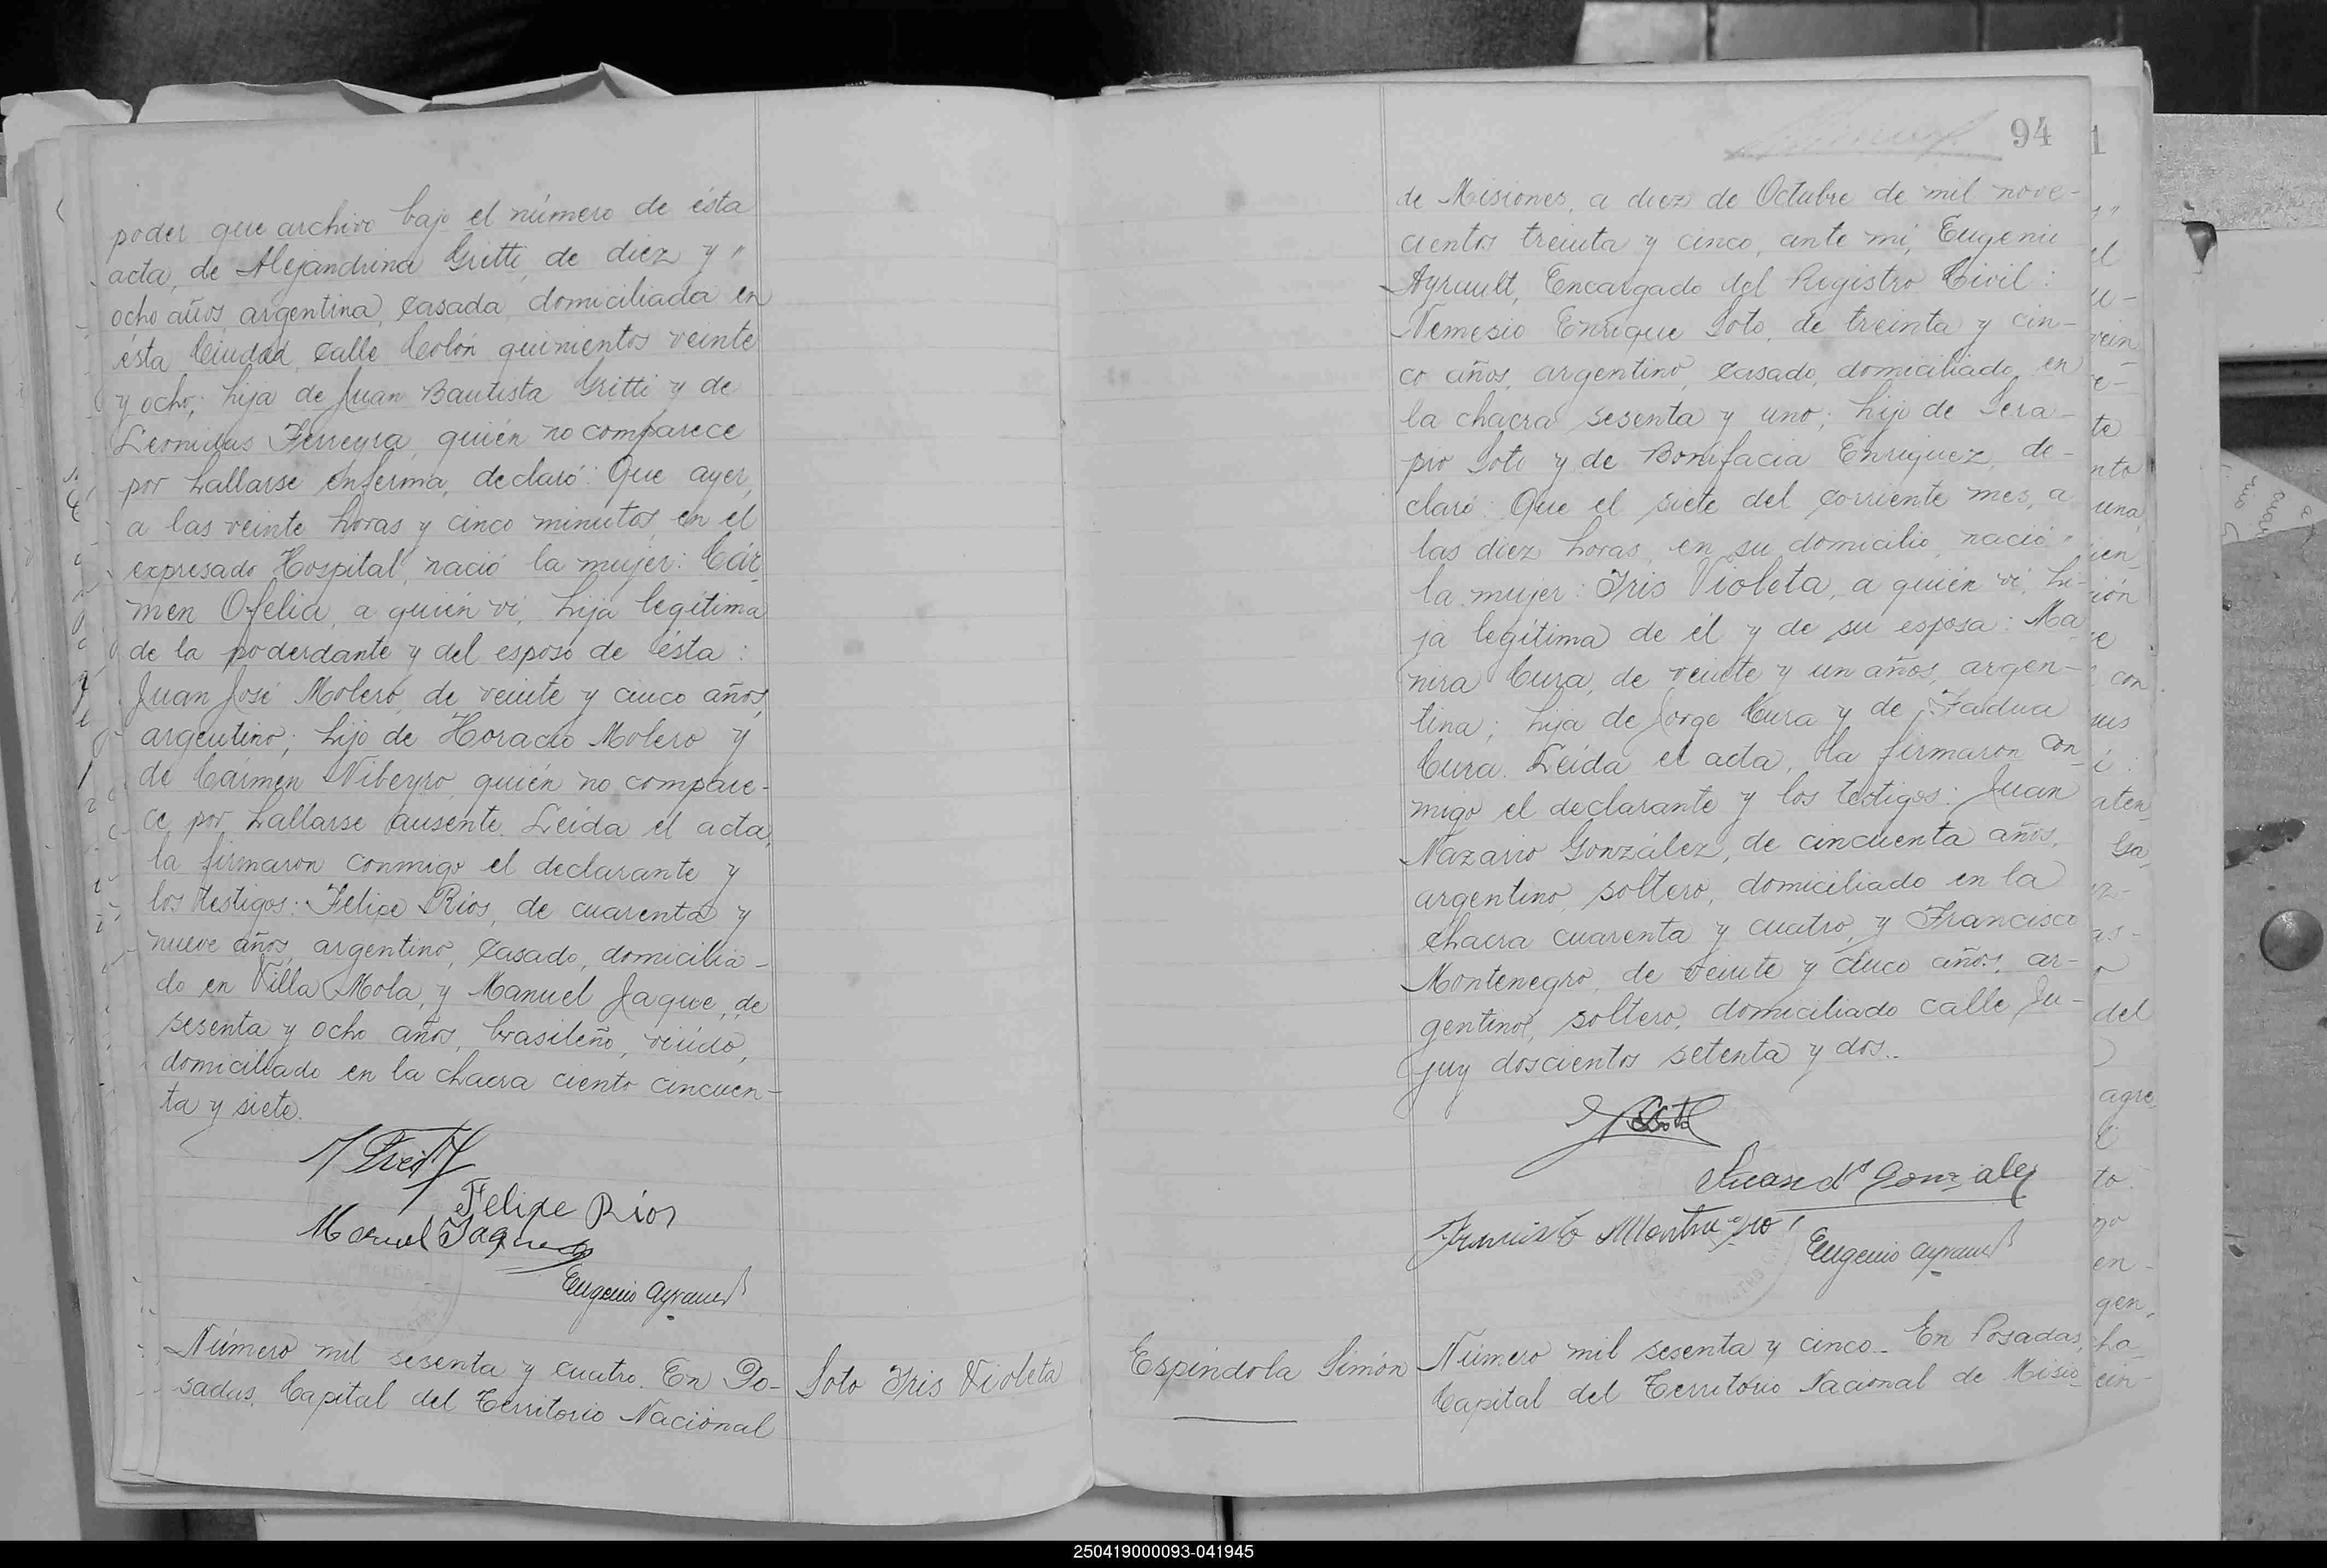 poder que archivo bajo el número de ésta
acta, de Alejandrina Gritti, de diez y "
ocho años, argentina, casada, domiciliada en
ésta Ciudad, calle Colón quinientos veinte
y ocho; hija de Juan Bautista Gritti y de
Leonidas Ferreyra, quién no comparece
por hallarse enferma, declaró: Que ayer,
a las veinte horas y cinco minutos, en el
expresado Hospital, nació la mujer: Cár-
men Ofelia, a quién vi, hija legítima
de la poderdante y del esposo de ésta:
Juan José Molero, de veinte y cinco años,
argentino; hijo de Horacio Molero y
de Cármen Nibeyro, quién no compare-
ce por hallarse ausente. Leída el acta,
la firmaron conmigo el declarante y
los testigos: Felipe Rios, de cuarenta y
nueve años, argentino, casado, domicilia-
do en Villa Mola, y Manuel Jaque, de
sesenta y ocho años, brasileño, viúdo,
domiciliado en la chacra ciento cincuen-
ta y siete.
Felipe Rios
Manuel Jaque
Eugenio Ayrault
Número mil sesenta y cuatro. En Po-
sadas, Capital del Territorio Nacional
Soto Iris Violeta
94
de Misiones, a diez de Octubre de mil nove-
cientos treinta y cinco, ante mí, Eugenio
Ayrault, Encargado del Registro Civil:
Nemesio Enrique Soto, de treinta y cin-
co años, argentino, casado, domiciliado en
la chacra sesenta y uno; hijo de Sera-
pio Soto y de Bonifacia Enriquez, de-
claró: Que el siete del corriente mes, a
las diez horas, en su domicilio, nació "
la mujer: Iris Violeta, a quién vi, hi-
ja legítima de él y de su esposa: Ma-
nira Cura, de veinte y un años, argen-
tina; hija de Jorge Cura y de Fadua
Cura. Leída el acta, la firmaron con-
migo el declarante y los testigos: Juan
Nazario González, de cincuenta años,
argentino, soltero, domiciliado en la
chacra cuarenta y cuatro, y Francisco
Montenegro, de veinte y cinco años, ar-
gentino, soltero, domiciliado calle Ju-
juy doscientos setenta y dos..
Juan Gonzalez
Francisco Montenegro
Eugenio Ayrault
Espíndola Simón
Número mil sesenta y cinco.. En Posadas,
Capital del Territorio Nacional de Misio-
250419000093-041945